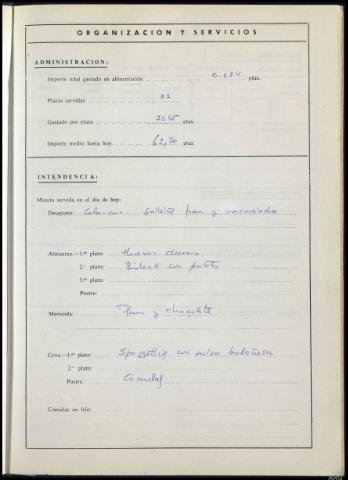 ORGANIZACION Y SERVICIOS
ADMINISTRACION:
Importe total gastado en alimentación 2.284 ptas.
Platos servidos
Gastado por plato ptas.
Importe medio hasta hoy 62,70 ptas.
INTENDENCIA:
Minuta servida en el día de hoy:
Desayuno: Cola-cao Galletas pan y mermelada
Almuerzo.—1.er plato: Huevos duros
2.º plato: Bisteck con patatas
3.er plato:
Postre:
Merienda: Pan y chocolate
Cena.—1.er plato: Spaggettis con salsa boloñesa
2.º plato:
Postre: Ciruelas
Comidas en frío: